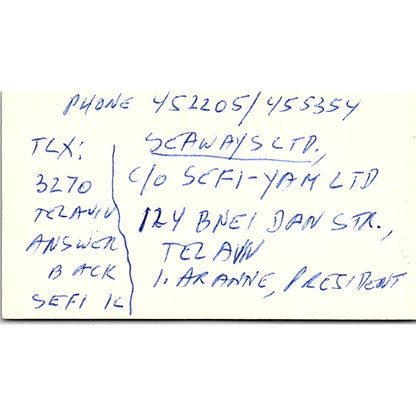 PHONE 452205/455354
TLX:
3270
TELAVIV
ANSWER
BACK
SEFI IL
SEAWAYS LTD.,
C/O SEFI-YAM LTD
124 BNEI DAN STR.,
TEL AVIV
I. ARANNE, PRESIDENT